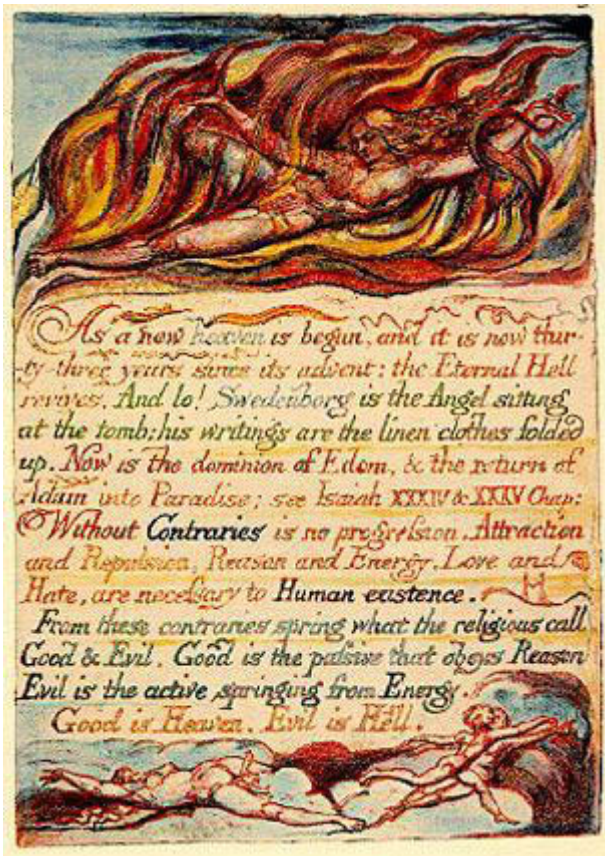 As a new heaven is begun, and it is now thir-
-ty-three years since its advent: the Eternal Hell
revives. And lo! Swedenborg is the Angel sitting
at the tomb; his writings are the linen clothes folded
up. Now is the dominion of Edom, & the return of
Adam into Paradise; see Isaiah XXXIV & XXXV Chap:
Without Contraries is no progression. Attraction
and Repulsion, Reason and Energy, Love and
Hate, are necessary to Human existence.
From these contraries spring what the religious call
Good & Evil. Good is the passive that obeys Reason
Evil is the active springing from Energy.
Good is Heaven. Evil is Hell.